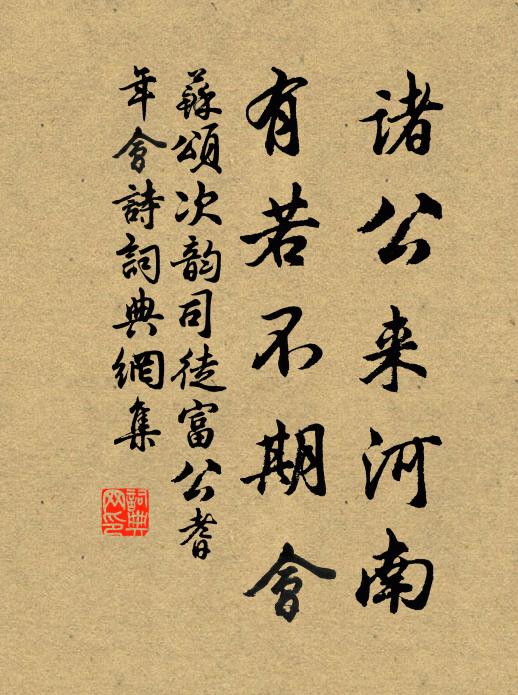 诸公来河南
有若不期會
蘇頌次韵司徒富公耆
年會詩詞典網集
詞典網印